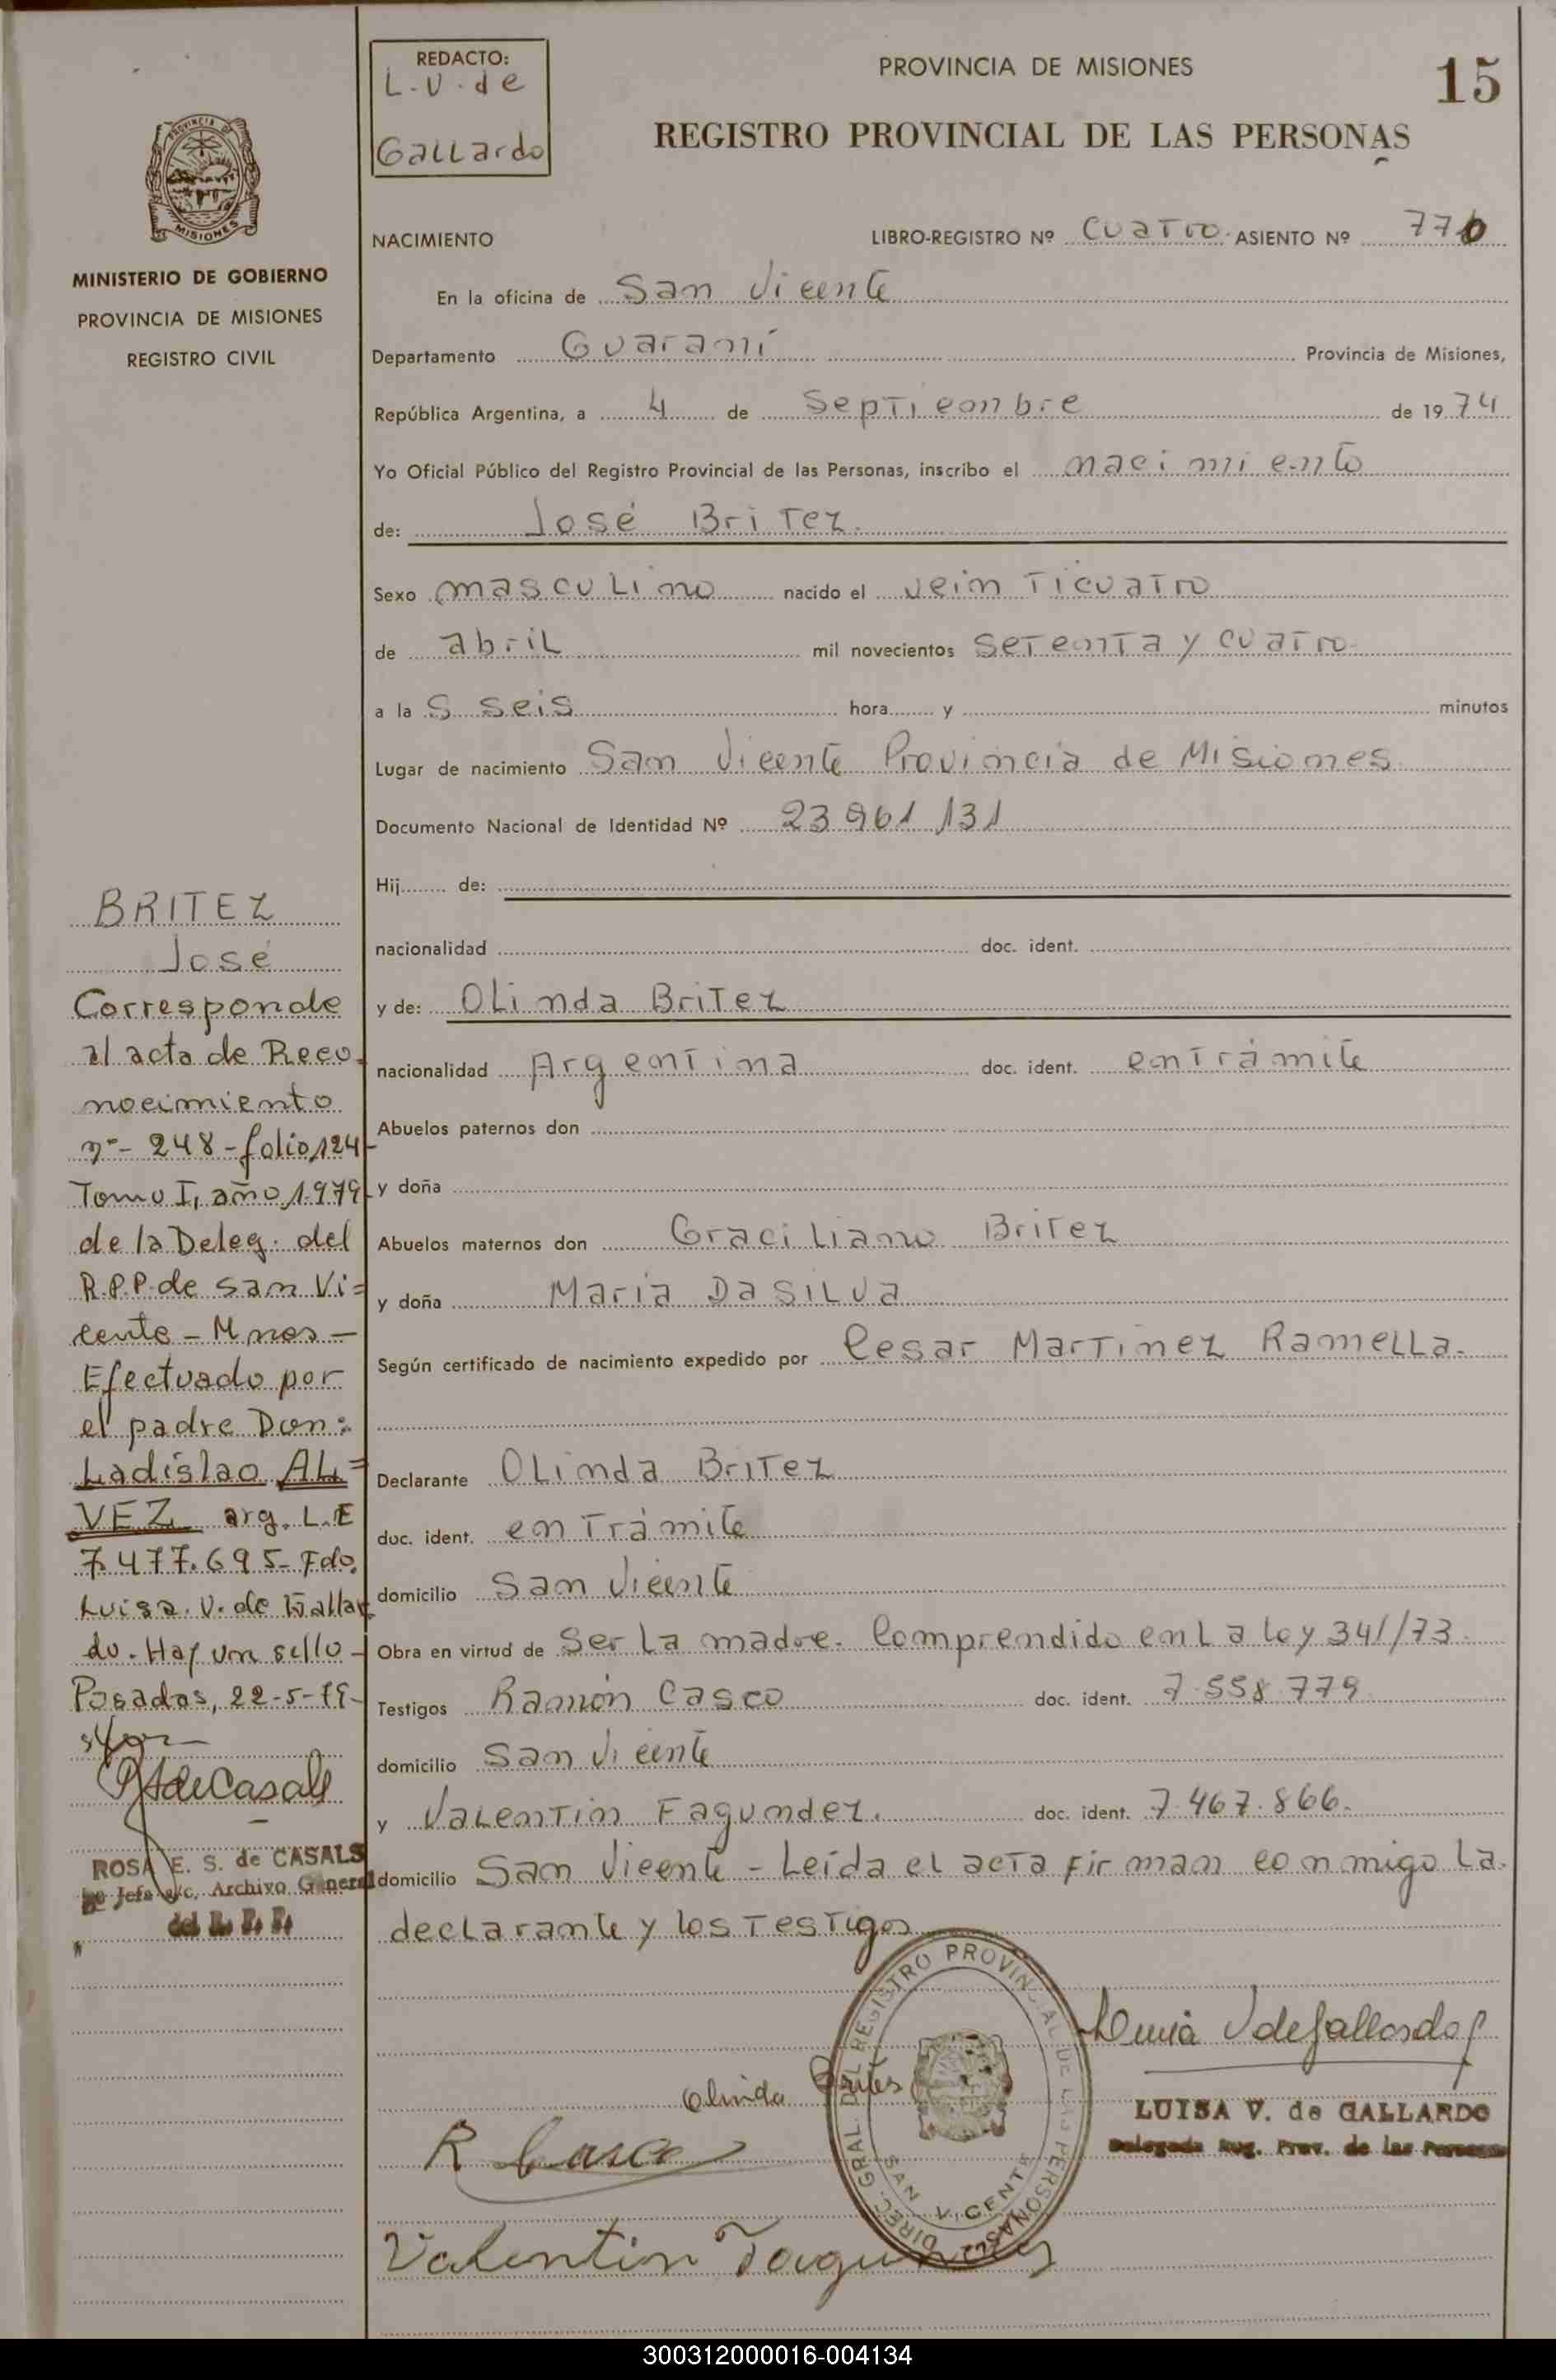 REDACTO:
L.V. de
Gallardo
PROVINCIA DE MISIONES
15
REGISTRO PROVINCIAL DE LAS PERSONAS
PROVINCIA DE
MISIONES
MINISTERIO DE GOBIERNO
PROVINCIA DE MISIONES
REGISTRO CIVIL
NACIMIENTO LIBRO-REGISTRO Nº cuatro. ASIENTO Nº 776
En la oficina de San Vicente
Departamento Guaraní Provincia de Misiones,
República Argentina, a 4 de Septiembre de 1974
Yo Oficial Público del Registro Provincial de las Personas, inscribo el nacimiento
de: José Britez.
Sexo masculino nacido el veinticuatro
de abril mil novecientos setenta y cuatro
a la s seis hora y minutos
Lugar de nacimiento San Vicente Provincia de Misiones
Documento Nacional de Identidad Nº 23 961 131
Hij de:
nacionalidad doc. ident.
y de: Olinda Britez
nacionalidad Argentina doc. ident. en trámite
Abuelos paternos don
y doña
Abuelos maternos don Graciliano Britez
y doña María Da Silva
Según certificado de nacimiento expedido por Cesar Martinez Ramella.
Declarante Olinda Britez
doc. ident. en trámite
domicilio San Vicente
Obra en virtud de ser la madre. Comprendido en la ley 341/73.
Testigos Ramón Casco doc. ident. 7.558.779
domicilio San Vicente
y Valentin Fagundez. doc. ident. 7.467.866.
domicilio San Vicente - Leída el acta firman conmigo la
declarante y los testigos
BRITEZ
José
Corresponde
al acta de Reco-
nocimiento
nº- 248 - folio 124
Tomo I, año 1979
de la Deleg. del
R.P.P. de San Vi=
cente - Mnes -
Efectuado por
el padre Don:
Ladislao AL=
VEZ arg. L.E
7.477.695- Fdo.
Luisa. V. de Gallar
do. Hay un sello -
Posadas, 22-5-79-
ROSA E. S. de CASALS
Jefa a/c. Archivo General
del R. P. P.
DIREC. GRAL. DEL REGISTRO PROVINCIAL DE LAS PERSONAS
SAN VICENTE
Luisa V de Gallardo
Olinda Brites
LUISA V. de GALLARDO
Delegada Reg. Prov. de las Personas
R Casco
Valentin Fagundez
300312000016-004134